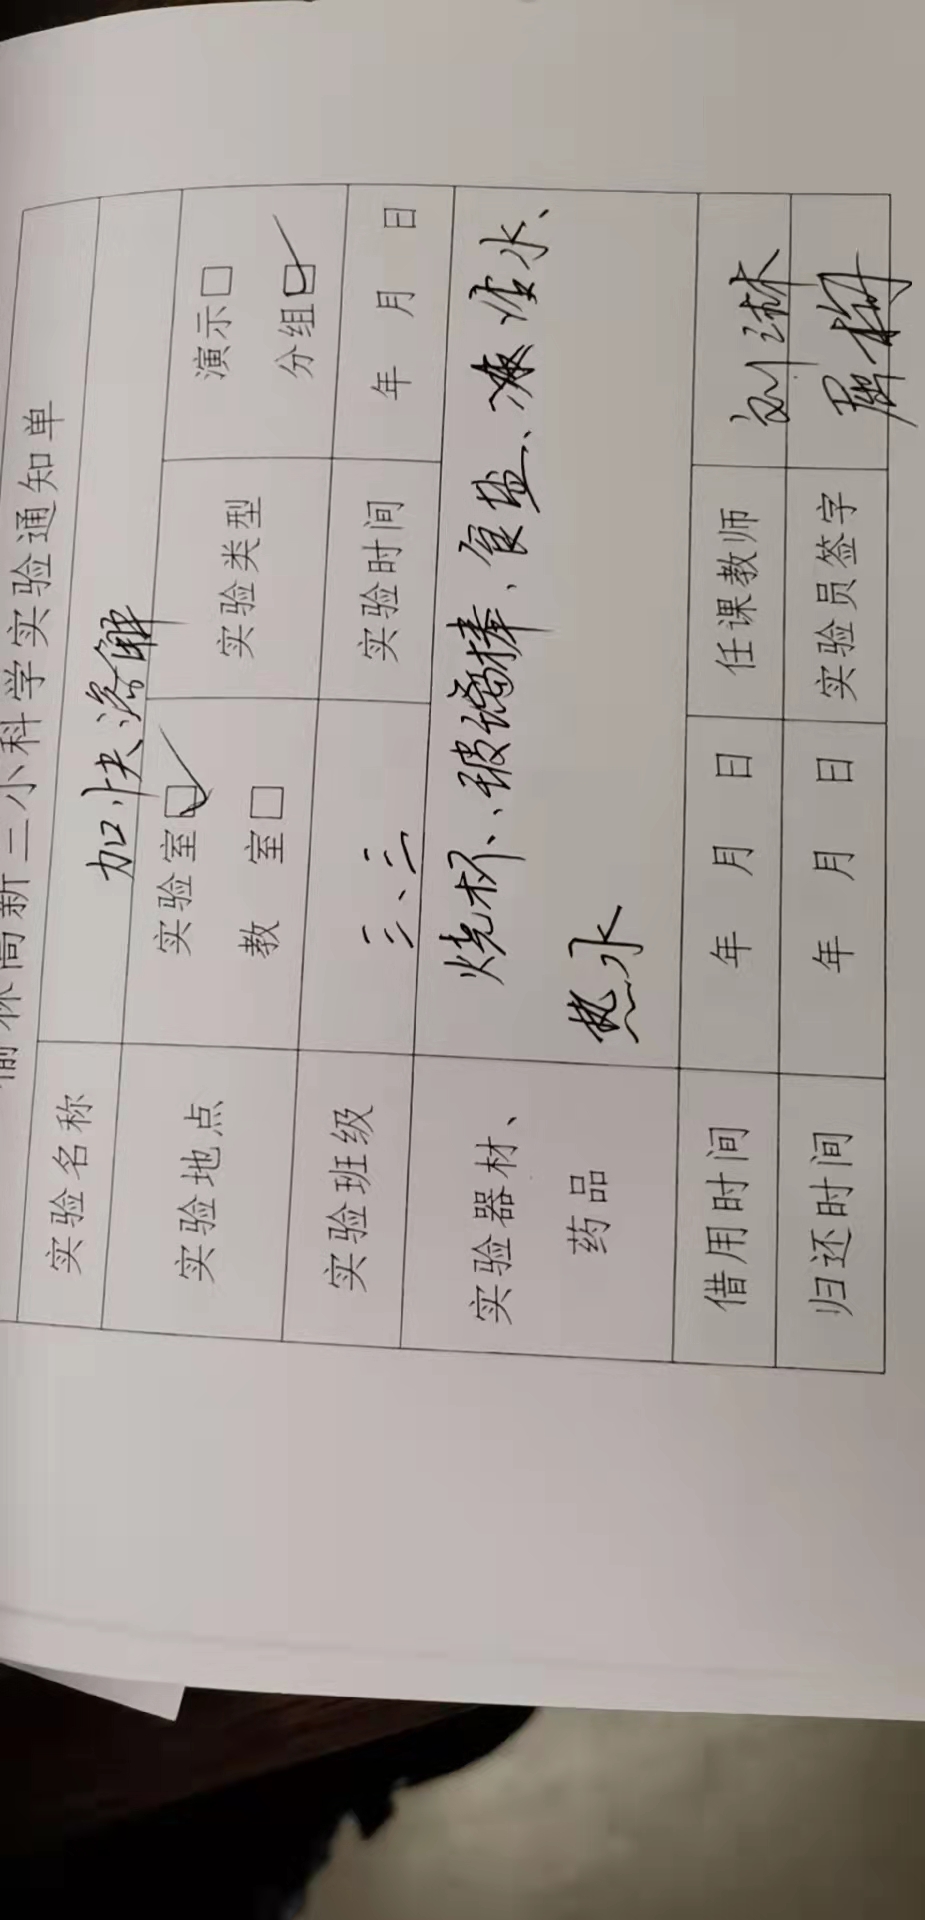 榆林高新三小科学实验通知单
实验名称 加快溶解
实验地点 实验室☑ 教 室□ 实验类型 演示□ 分组☑
实验班级 三、三 实验时间 年 月 日
实验器材、药品 烧杯、玻璃棒、食盐、液体水、
热水
借用时间 年 月 日 任课教师 刘
归还时间 年 月 日 实验员签字